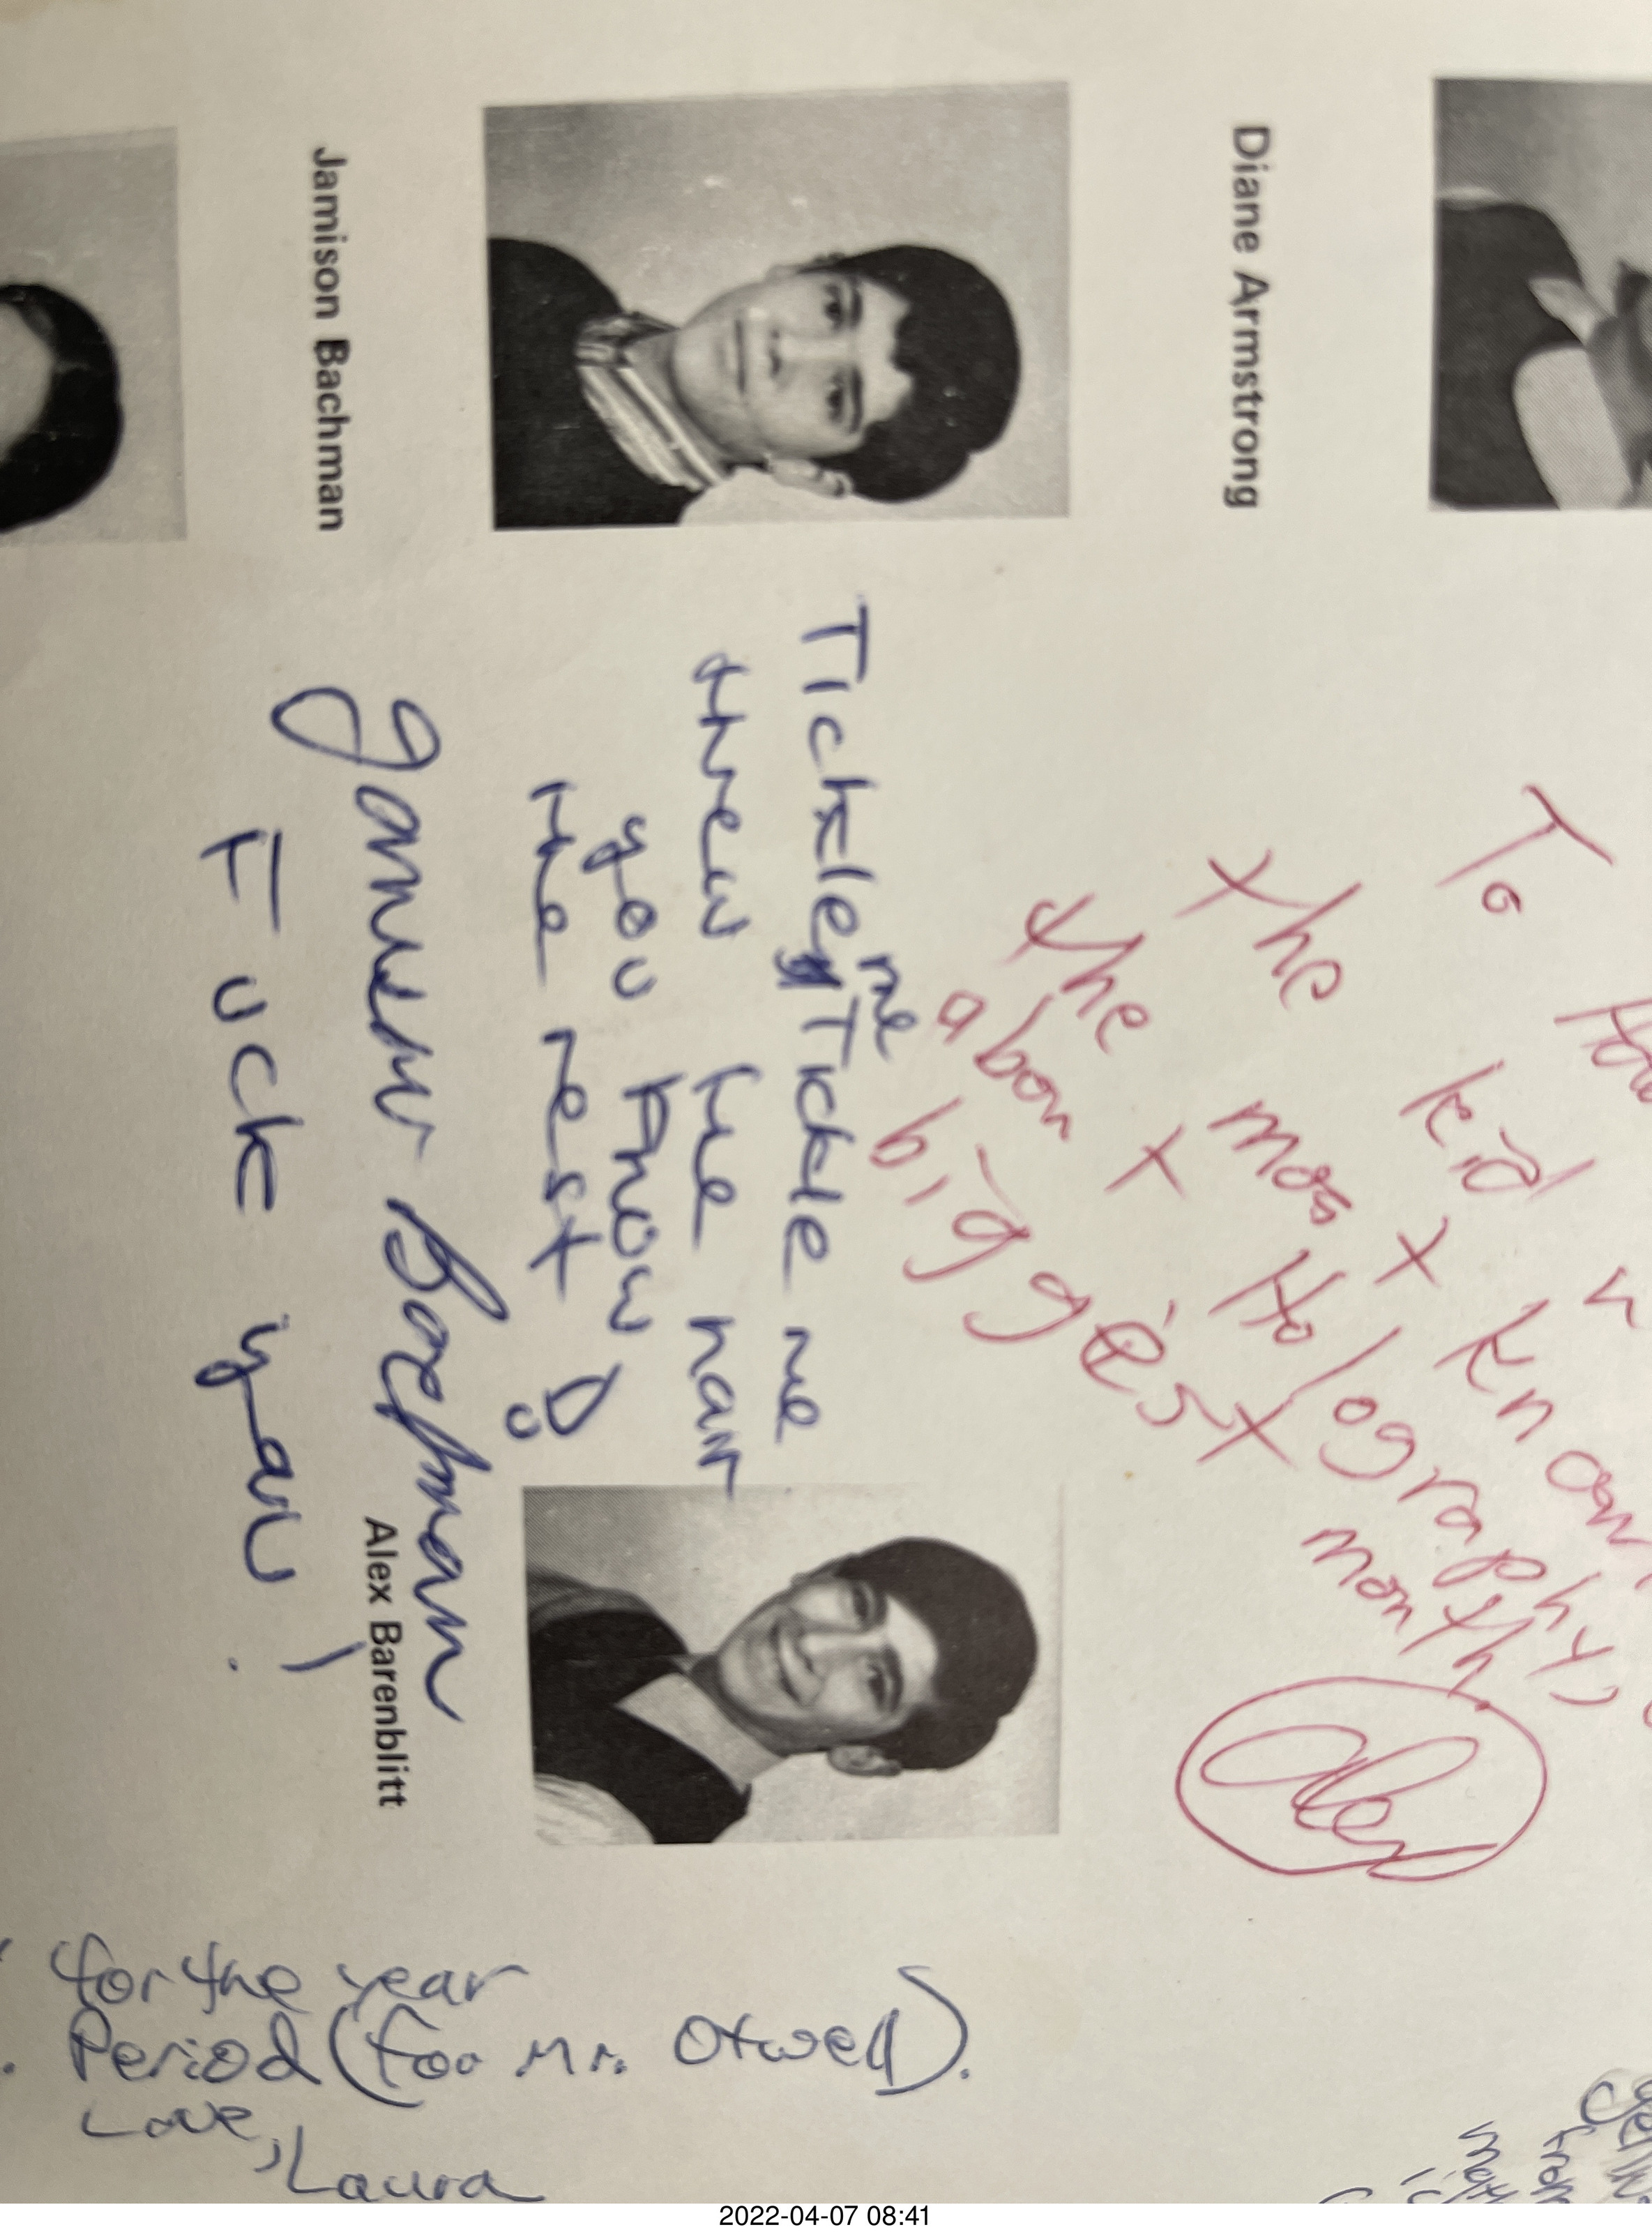 Diane Armstrong
Jamison Bachman
Alex Barenblitt
To
the kid
the most
about Holography,
biggest month.
Alex
Tickle me Tickle me
threw the hair
you know
the rest!
Jamison Bachman
Fuck you!
for the year
Period (too Mr. Otwell).
Love, Laura
2022-04-07 08:41